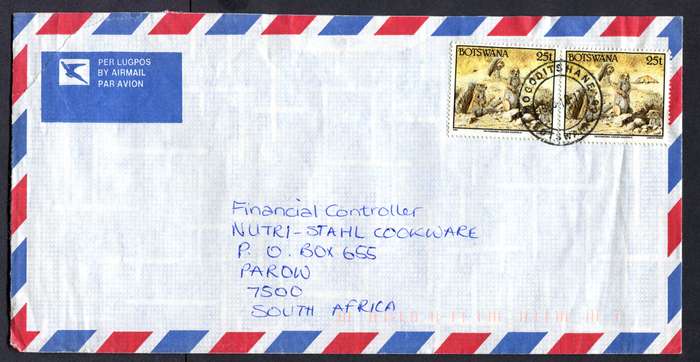 PER LUGPOS
BY AIRMAIL
PAR AVION
BOTSWANA 25t
BOTSWANA 25t
MOGODITSHANE
BOTSWANA
Financial Controller
NUTRI-STAHL COOKWARE
P. O. BOX 655
PAROW
7500
SOUTH AFRICA